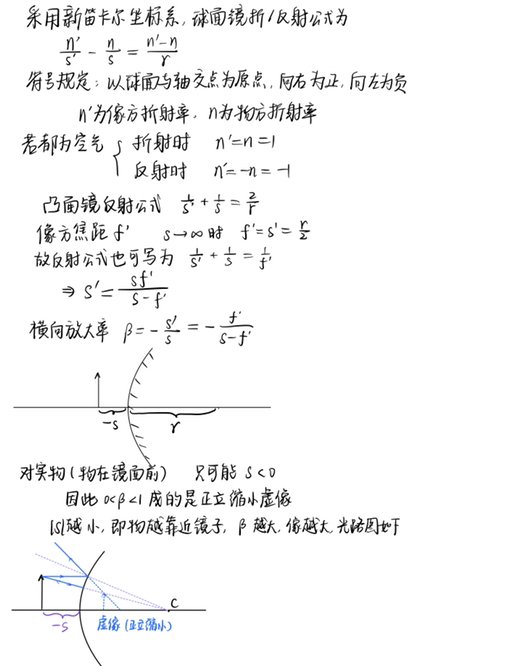 采用新笛卡尔坐标系,球面镜折/反射公式为
n'/s' - n/s = (n'-n)/r
符号规定:以球面与轴交点为原点,向右为正,向左为负
n'为像方折射率,n为物方折射率
若都为空气 { 折射时 n'=n=1
反射时 n'=-n=-1
凸面镜反射公式 1/s' + 1/s = 2/r
像方焦距f' s→∞时 f'=s'=r/2
故反射公式也可写为 1/s' + 1/s = 1/f'
⇒ s' = sf'/(s-f')
横向放大率 β = -s'/s = -f'/(s-f')
-s r
对实物(物在镜面前) 只可能 s<0
因此 0<β<1 成的是正立缩小虚像
|s|越小,即物越靠近镜子,β越大,像越大,光路图如下
C
-s 虚像(正立缩小)